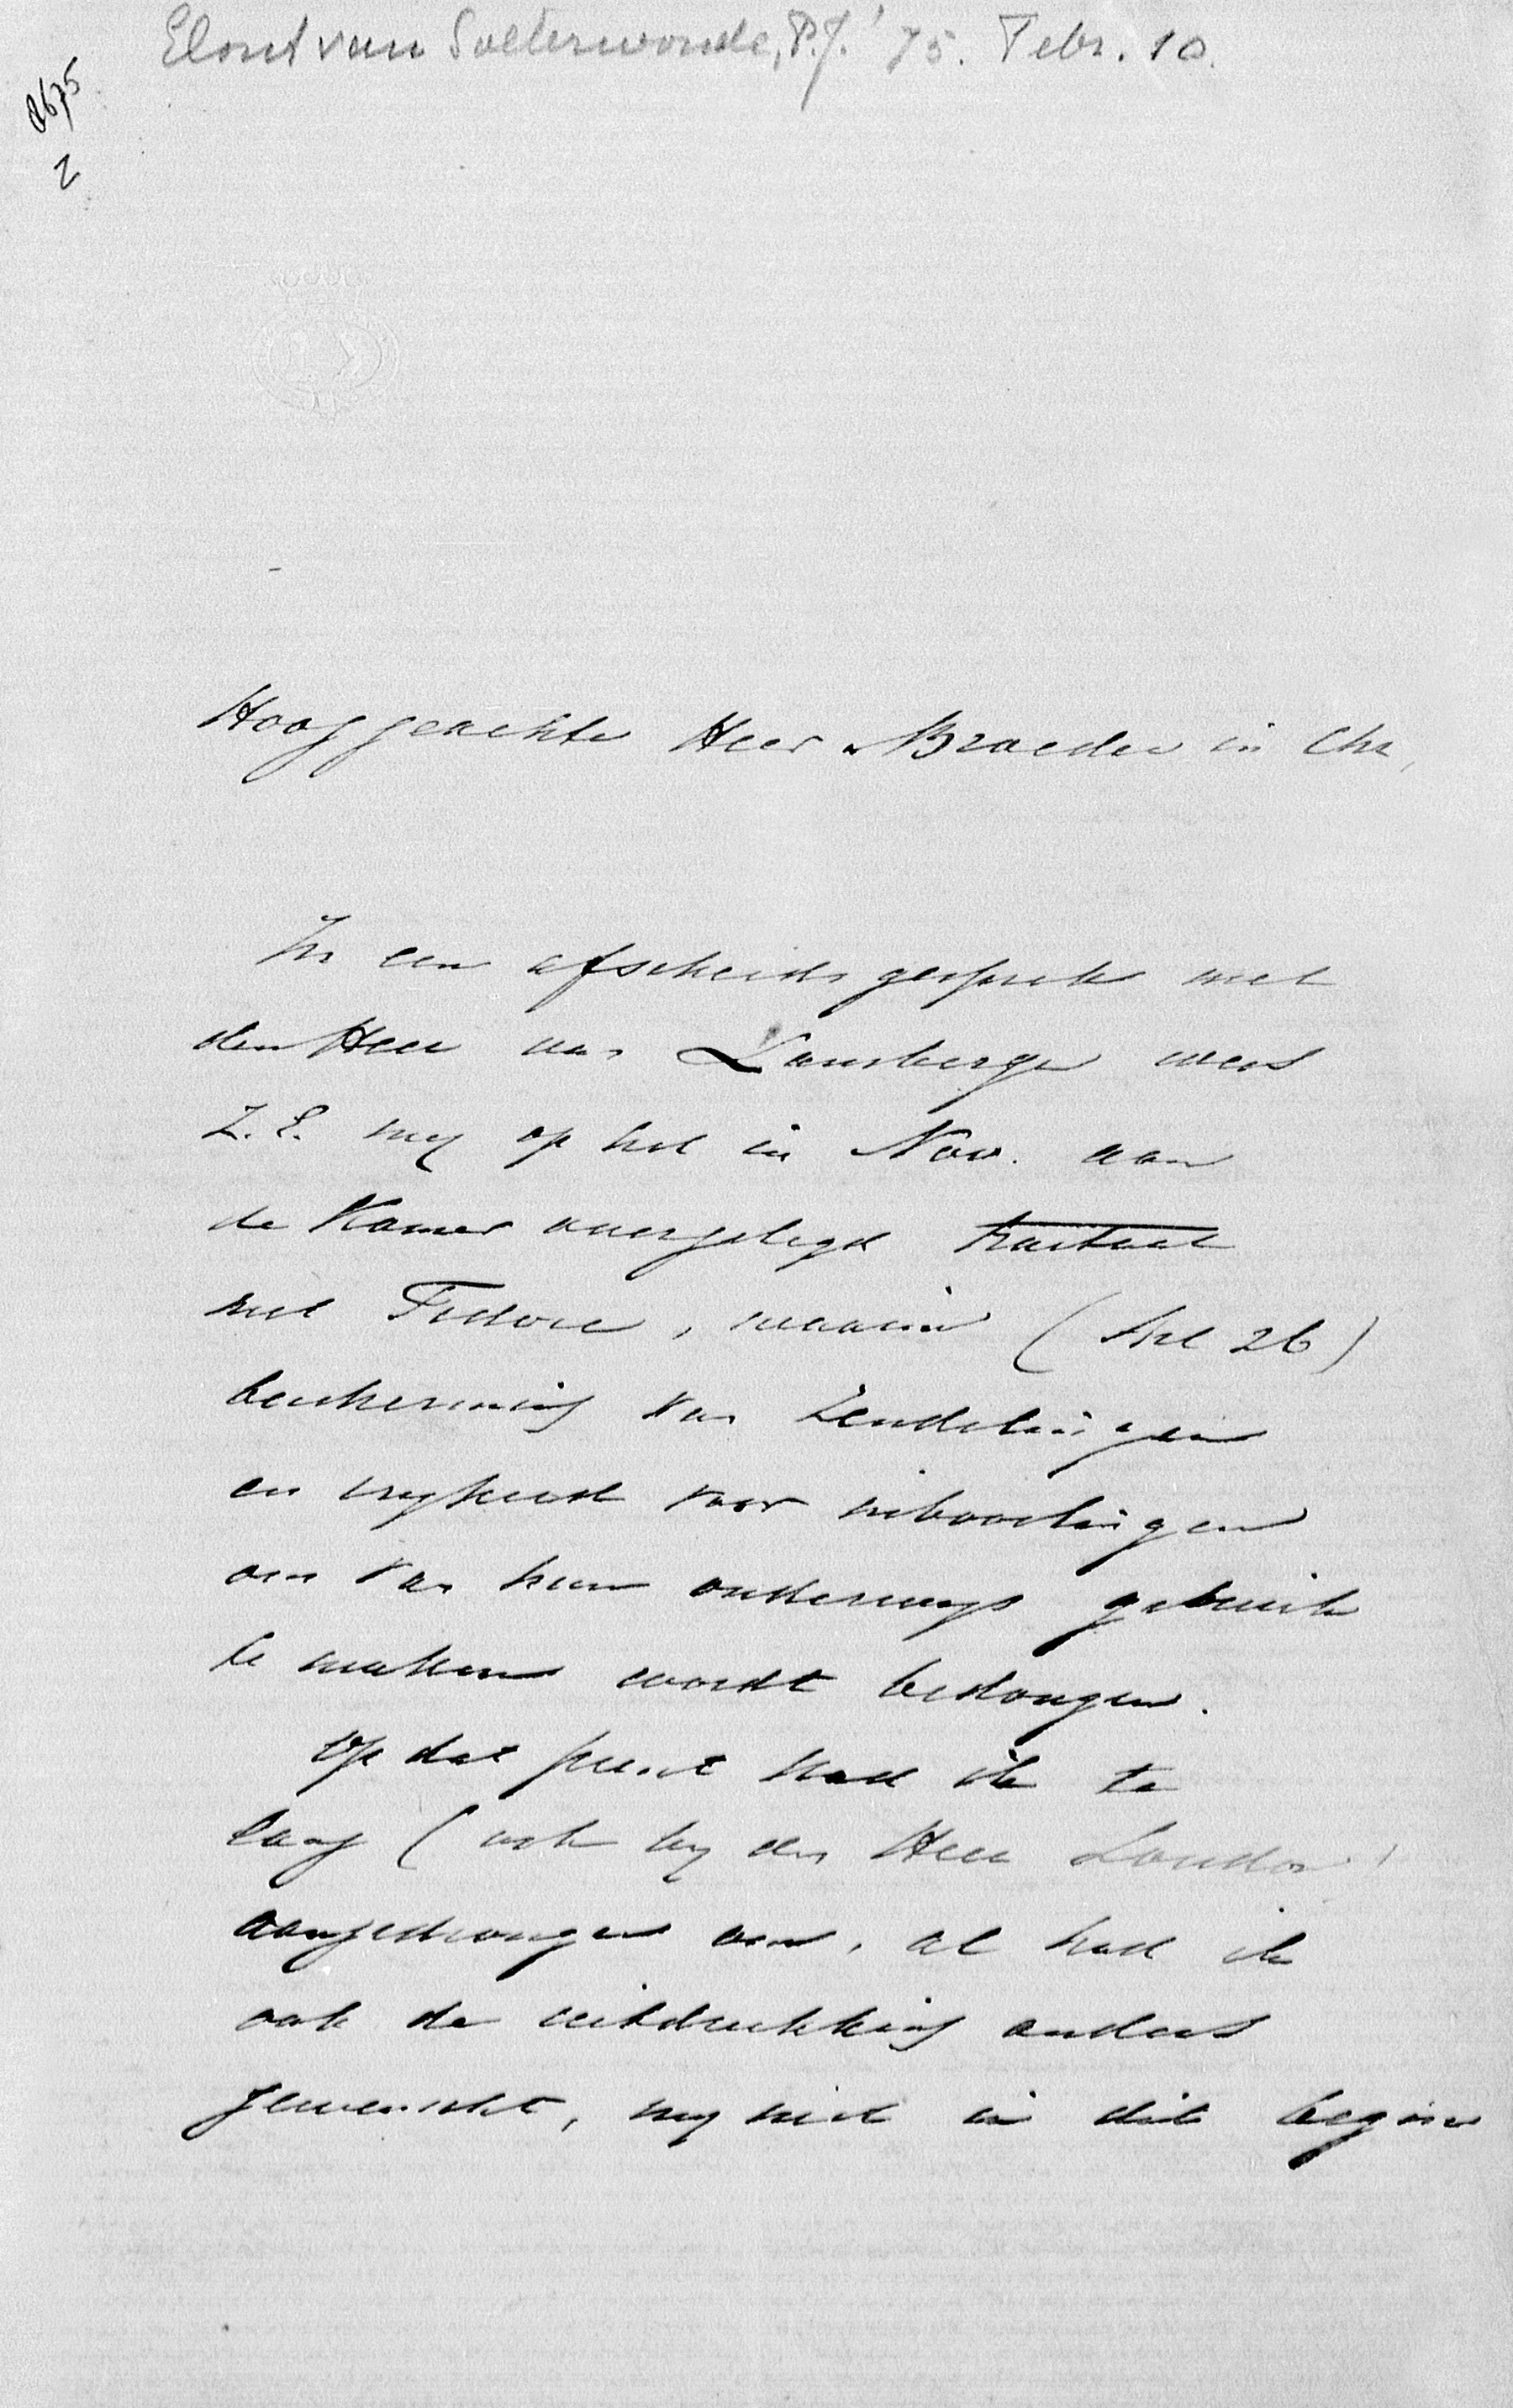 Elout van Soeterwoude, P.J. '75. Febr. 10.
0675
2
Hooggeachte Heer & Broeder in Chr,
In een afscheids gesprek met
den Heer van Lansberge wees
Z. E. my op het in Nov. aan
de Kamer overgelegd tractaat
met Tidore, waarin (Art 26)
bescherming van Zendelingen
en vryheid voor inboorlingen
om van hun onderwys gebruik
te maken wordt bedongen.
Op dat punt had ik te
lang (ook by den Heer Loudon)
aangedrongen om, al had ik
ook de uitdrukking anders
gewenscht, my niet in dit begin